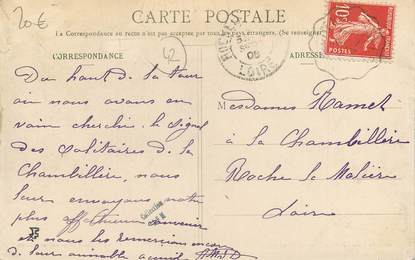 20€
CARTE POSTALE
La Correspondance au recto n'est pas acceptée par tous les pays étrangers. (Se renseigner
CORRESPONDANCE
ADRESSE
42
LOIRE
10c
POSTES
Du haut de la tour
où nous avons en
vain cherché le signal
des solitaires de la
Chambillère, nous
leur envoyons notre
plus affectueux souvenir
et nous les remercions encore
de leur aimable accueil
Mesdames Ramet
à la Chambillère
Roche la Molière
Loire